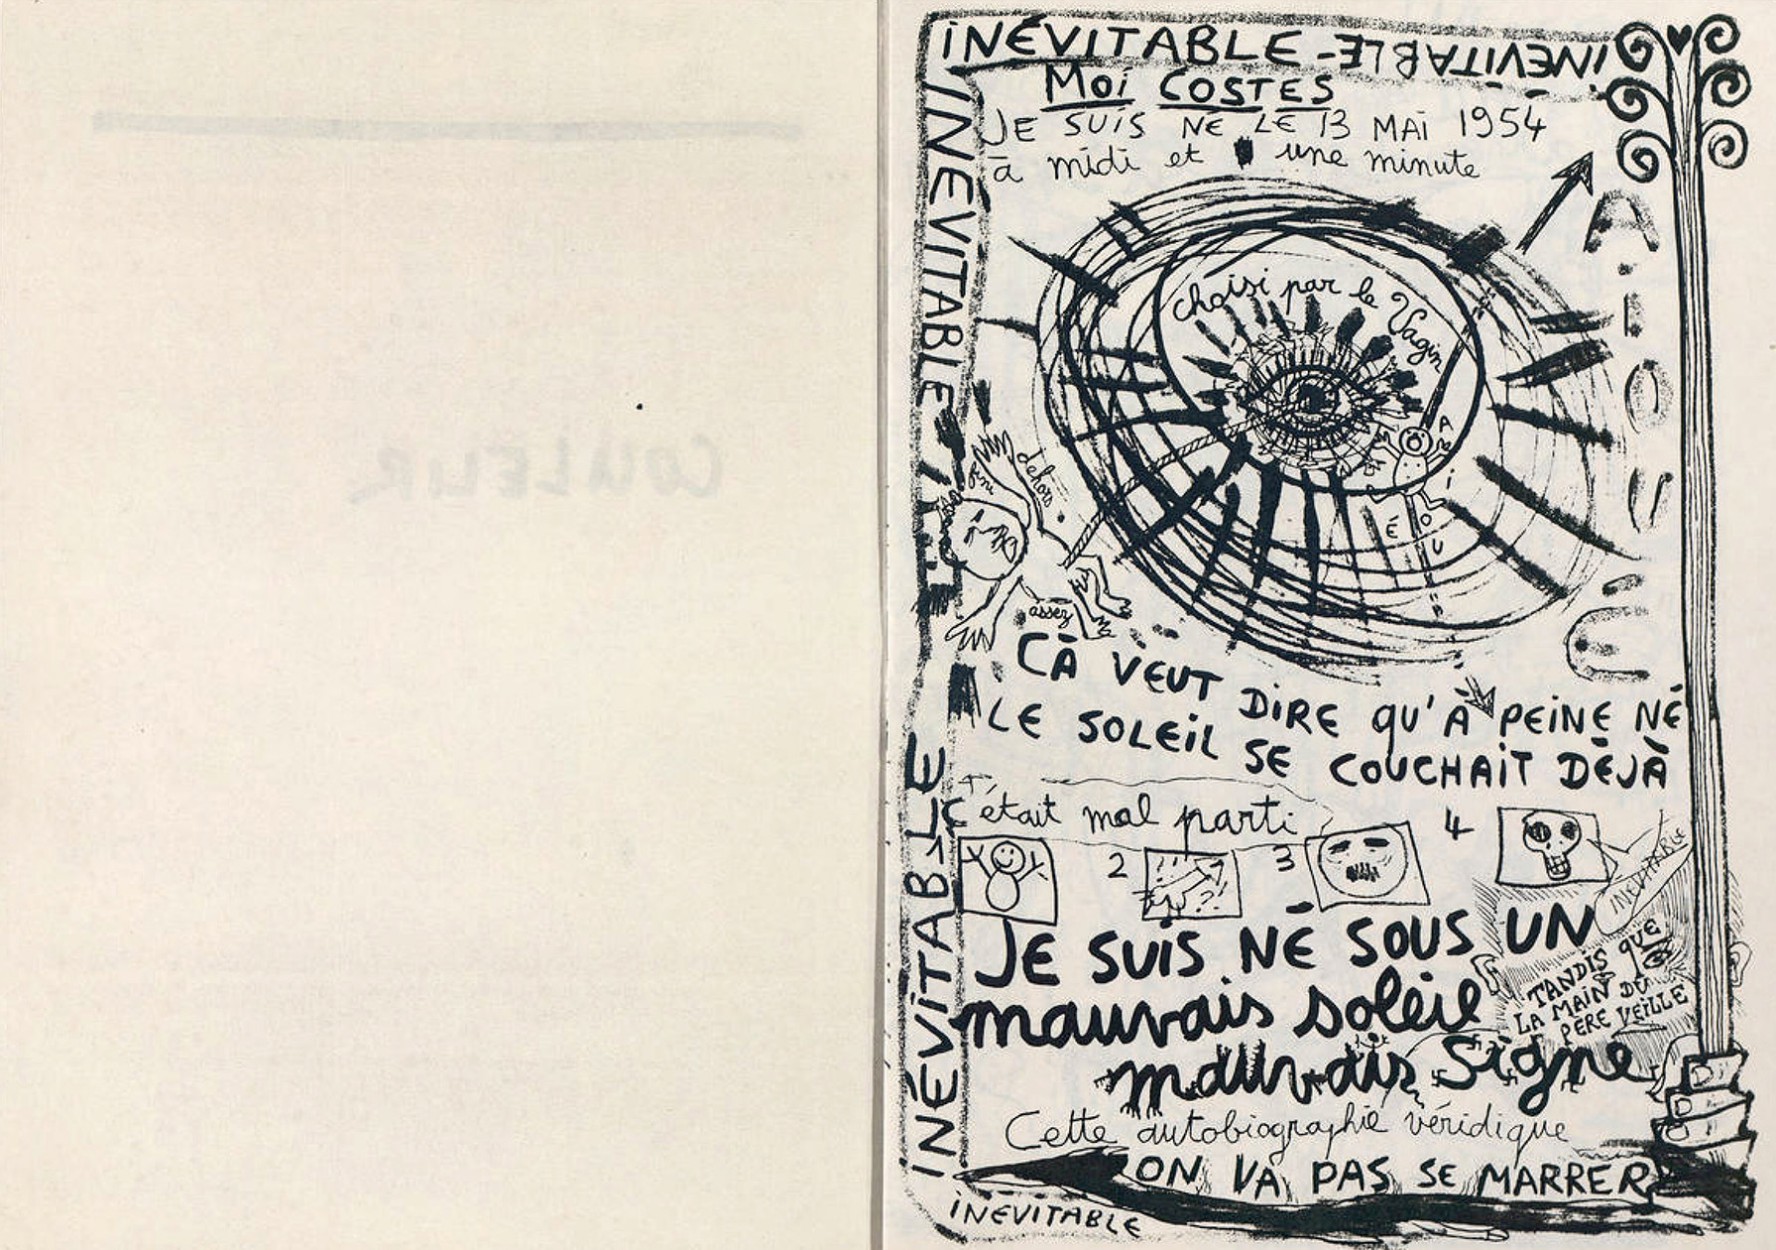 COULEUR
INÉVITABLE - INÉVITABLE
INÉVITABLE
INÉVITABLE
Moi COSTES
JE SUIS NÉ LE 13 MAI 1954
à midi et une minute
choisi par le Vagin
A
I
O
U
É
A
I
É
O
U
dehors
assez
ÇA VEUT DIRE QU'À PEINE NÉ
LE SOLEIL SE COUCHAIT DÉJÀ
c'était mal parti
2
3
4
INÉVITABLE
JE SUIS NÉ SOUS UN
mauvais soleil
mauvais Signe
TANDIS QUE
LA MAIN DU
PÈRE VEILLE
Cette autobiographie véridique
ON VA PAS SE MARRER
INÉVITABLE